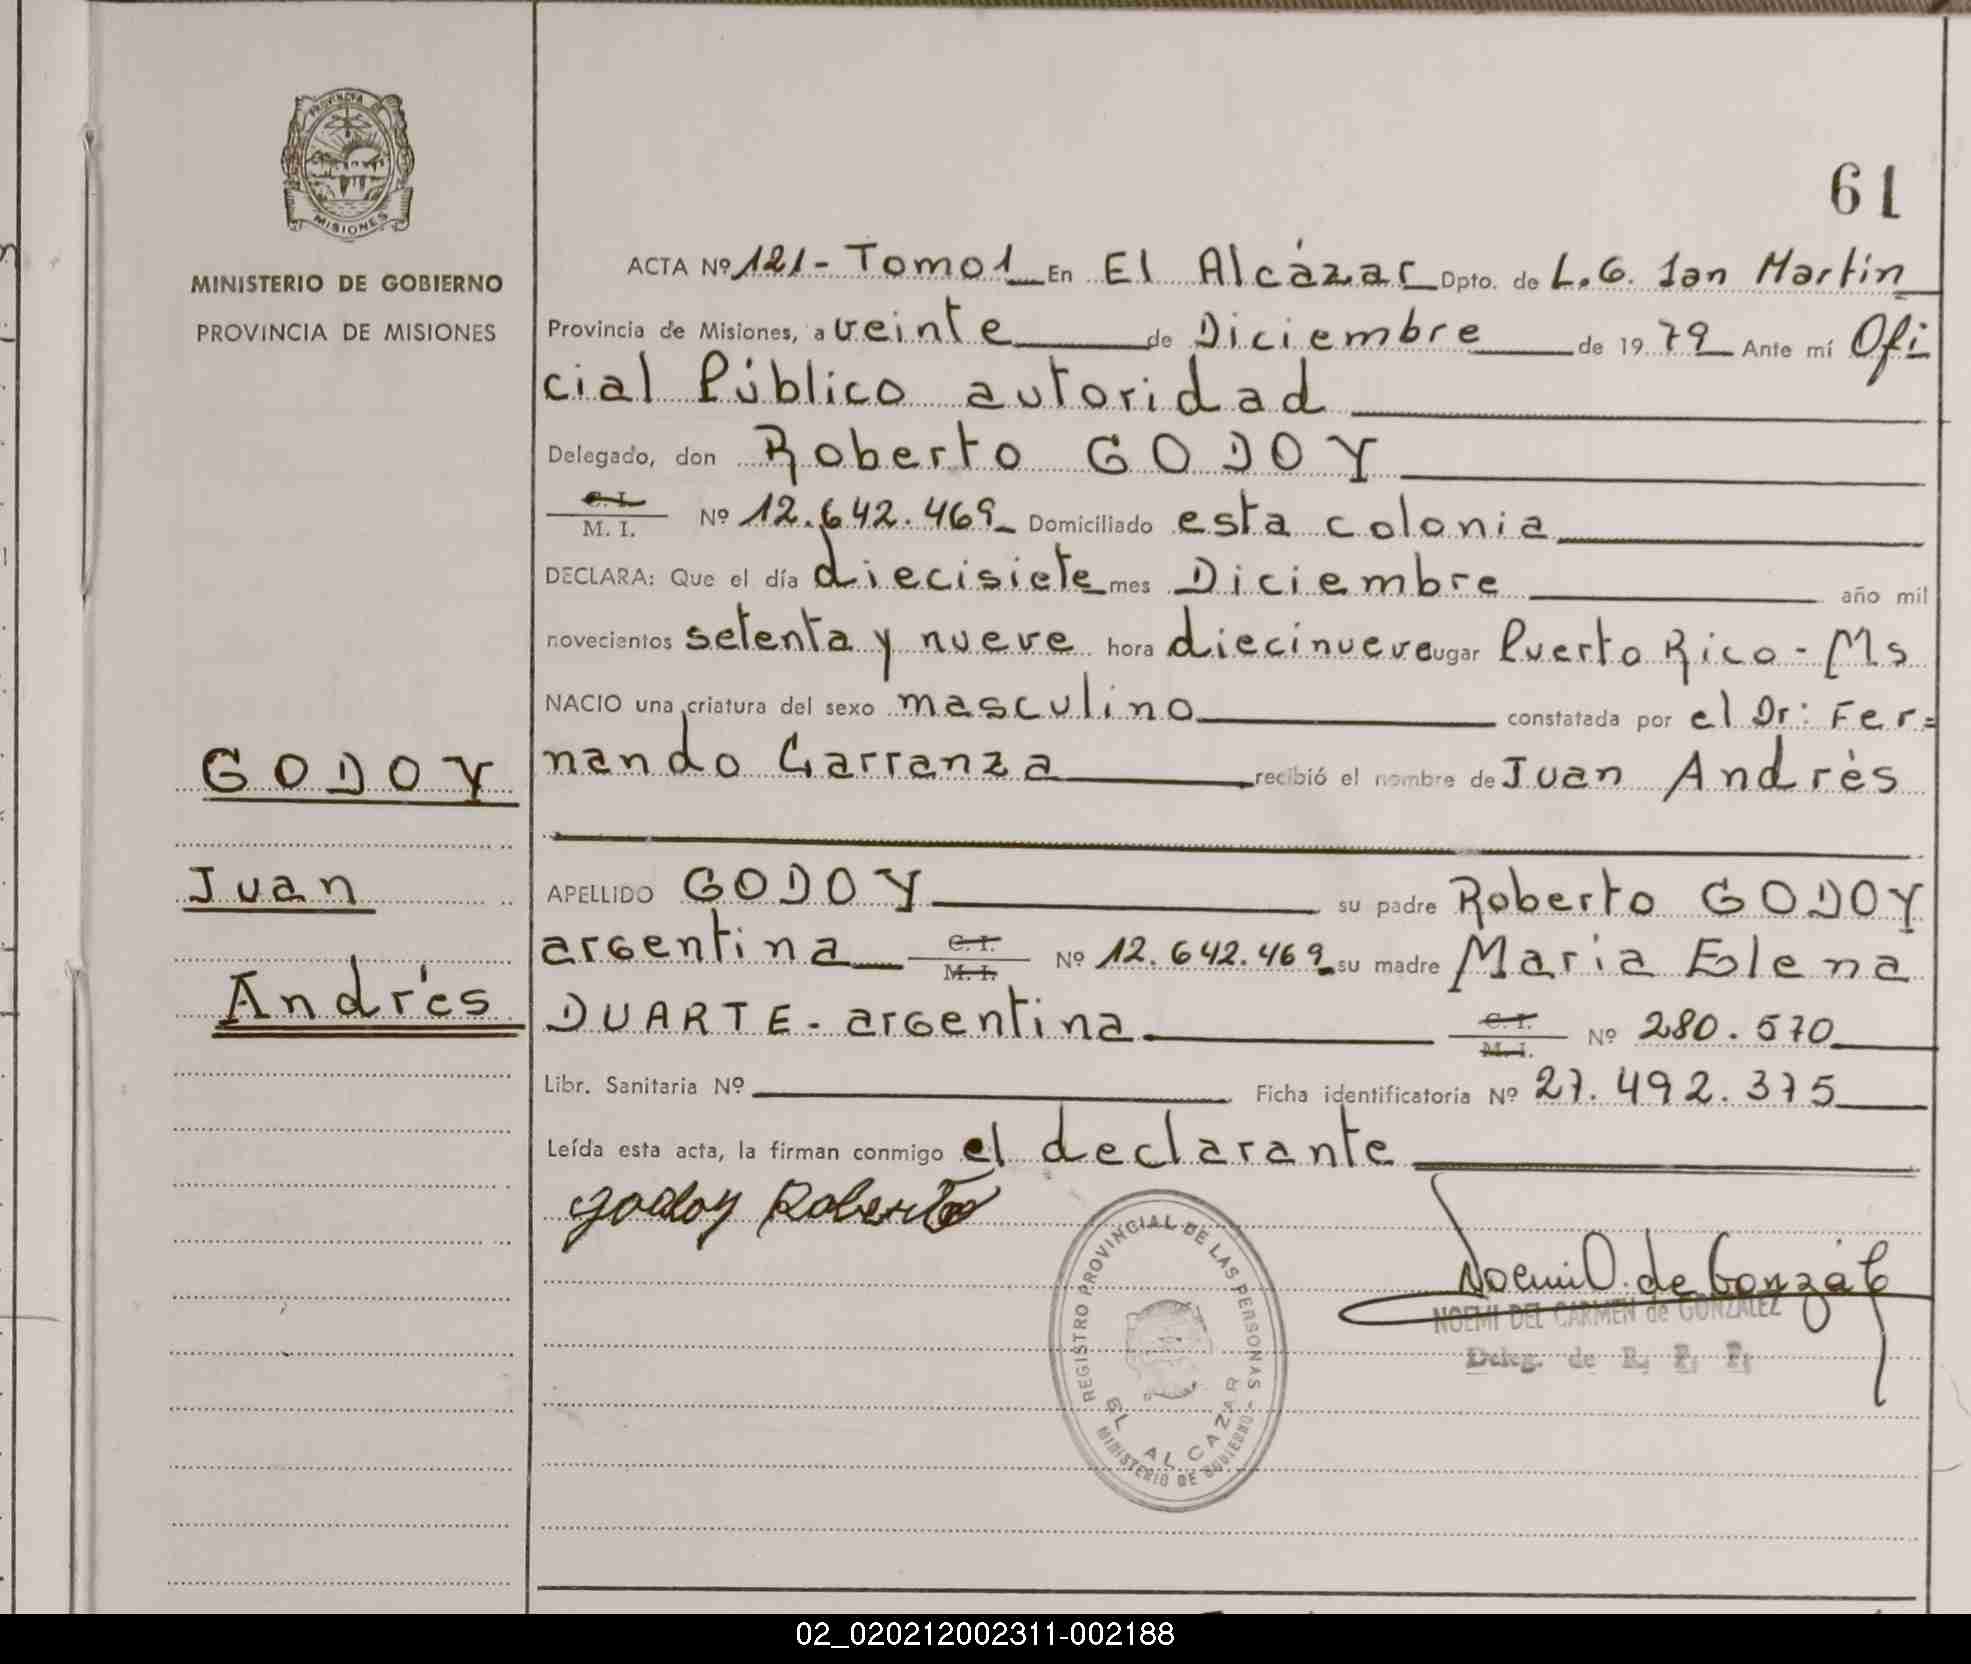 PROVINCIA DE
MISIONES
MINISTERIO DE GOBIERNO
PROVINCIA DE MISIONES
GODOY
Juan
Andrés
61
ACTA Nº 121 - Tomo 1 En El Alcázar Dpto. de L. G. San Martín
Provincia de Misiones, a veinte de Diciembre de 19 79 Ante mí Ofi
cial Público autoridad
Delegado, don Roberto GODOY
C. I.
M. I. Nº 12.642.469 Domiciliado esta colonia
DECLARA: Que el día diecisiete mes Diciembre año mil
novecientos setenta y nueve hora diecinueve ugar Puerto Rico - Ms
NACIO una criatura del sexo masculino constatada por el Dr: Fer=
nando Carranza recibió el nombre de Juan Andrés
APELLIDO GODOY su padre Roberto GODOY
argentina C. I. M. I. Nº 12.642.469 su madre Maria Elena
DUARTE - argentina C. I. M. I. Nº 280.570
Libr. Sanitaria Nº Ficha identificatoria Nº 27.492.375
Leída esta acta, la firman conmigo el declarante
Godoy Roberto
REGISTRO PROVINCIAL DE LAS PERSONAS
EL ALCAZAR
MINISTERIO DE GOBIERNO
Noemi D. de Gonzál
NOEMI DEL CARMEN de GONZALEZ
Deleg. de R. P. P.
02_020212002311-002188